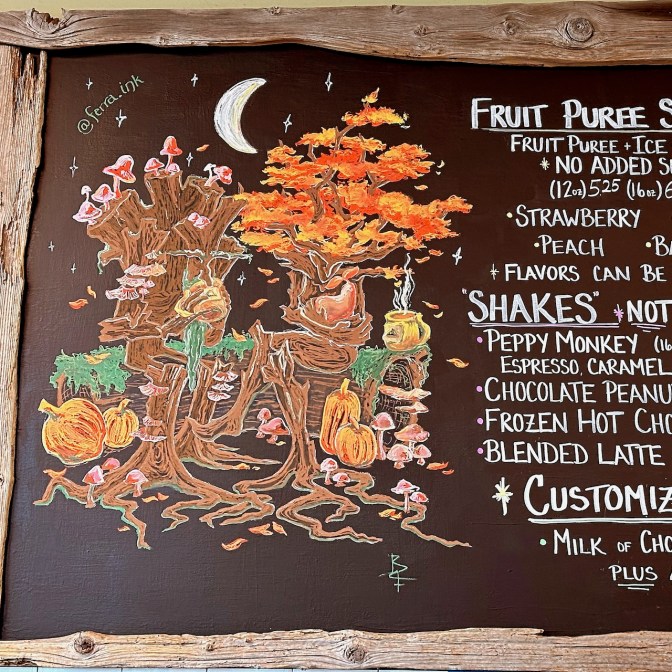 @ferra_ink
FRUIT PUREE
FRUIT PUREE + ICE
* NO ADDED
(12oz) 5.25 (16oz)
• STRAWBERRY
• PEACH •
* FLAVORS CAN BE
"SHAKES" * NOT
• PEPPY MONKEY
ESPRESSO, CARAMEL
• CHOCOLATE
• FROZEN HOT
• BLENDED LATTE
MILK OF
PLUS